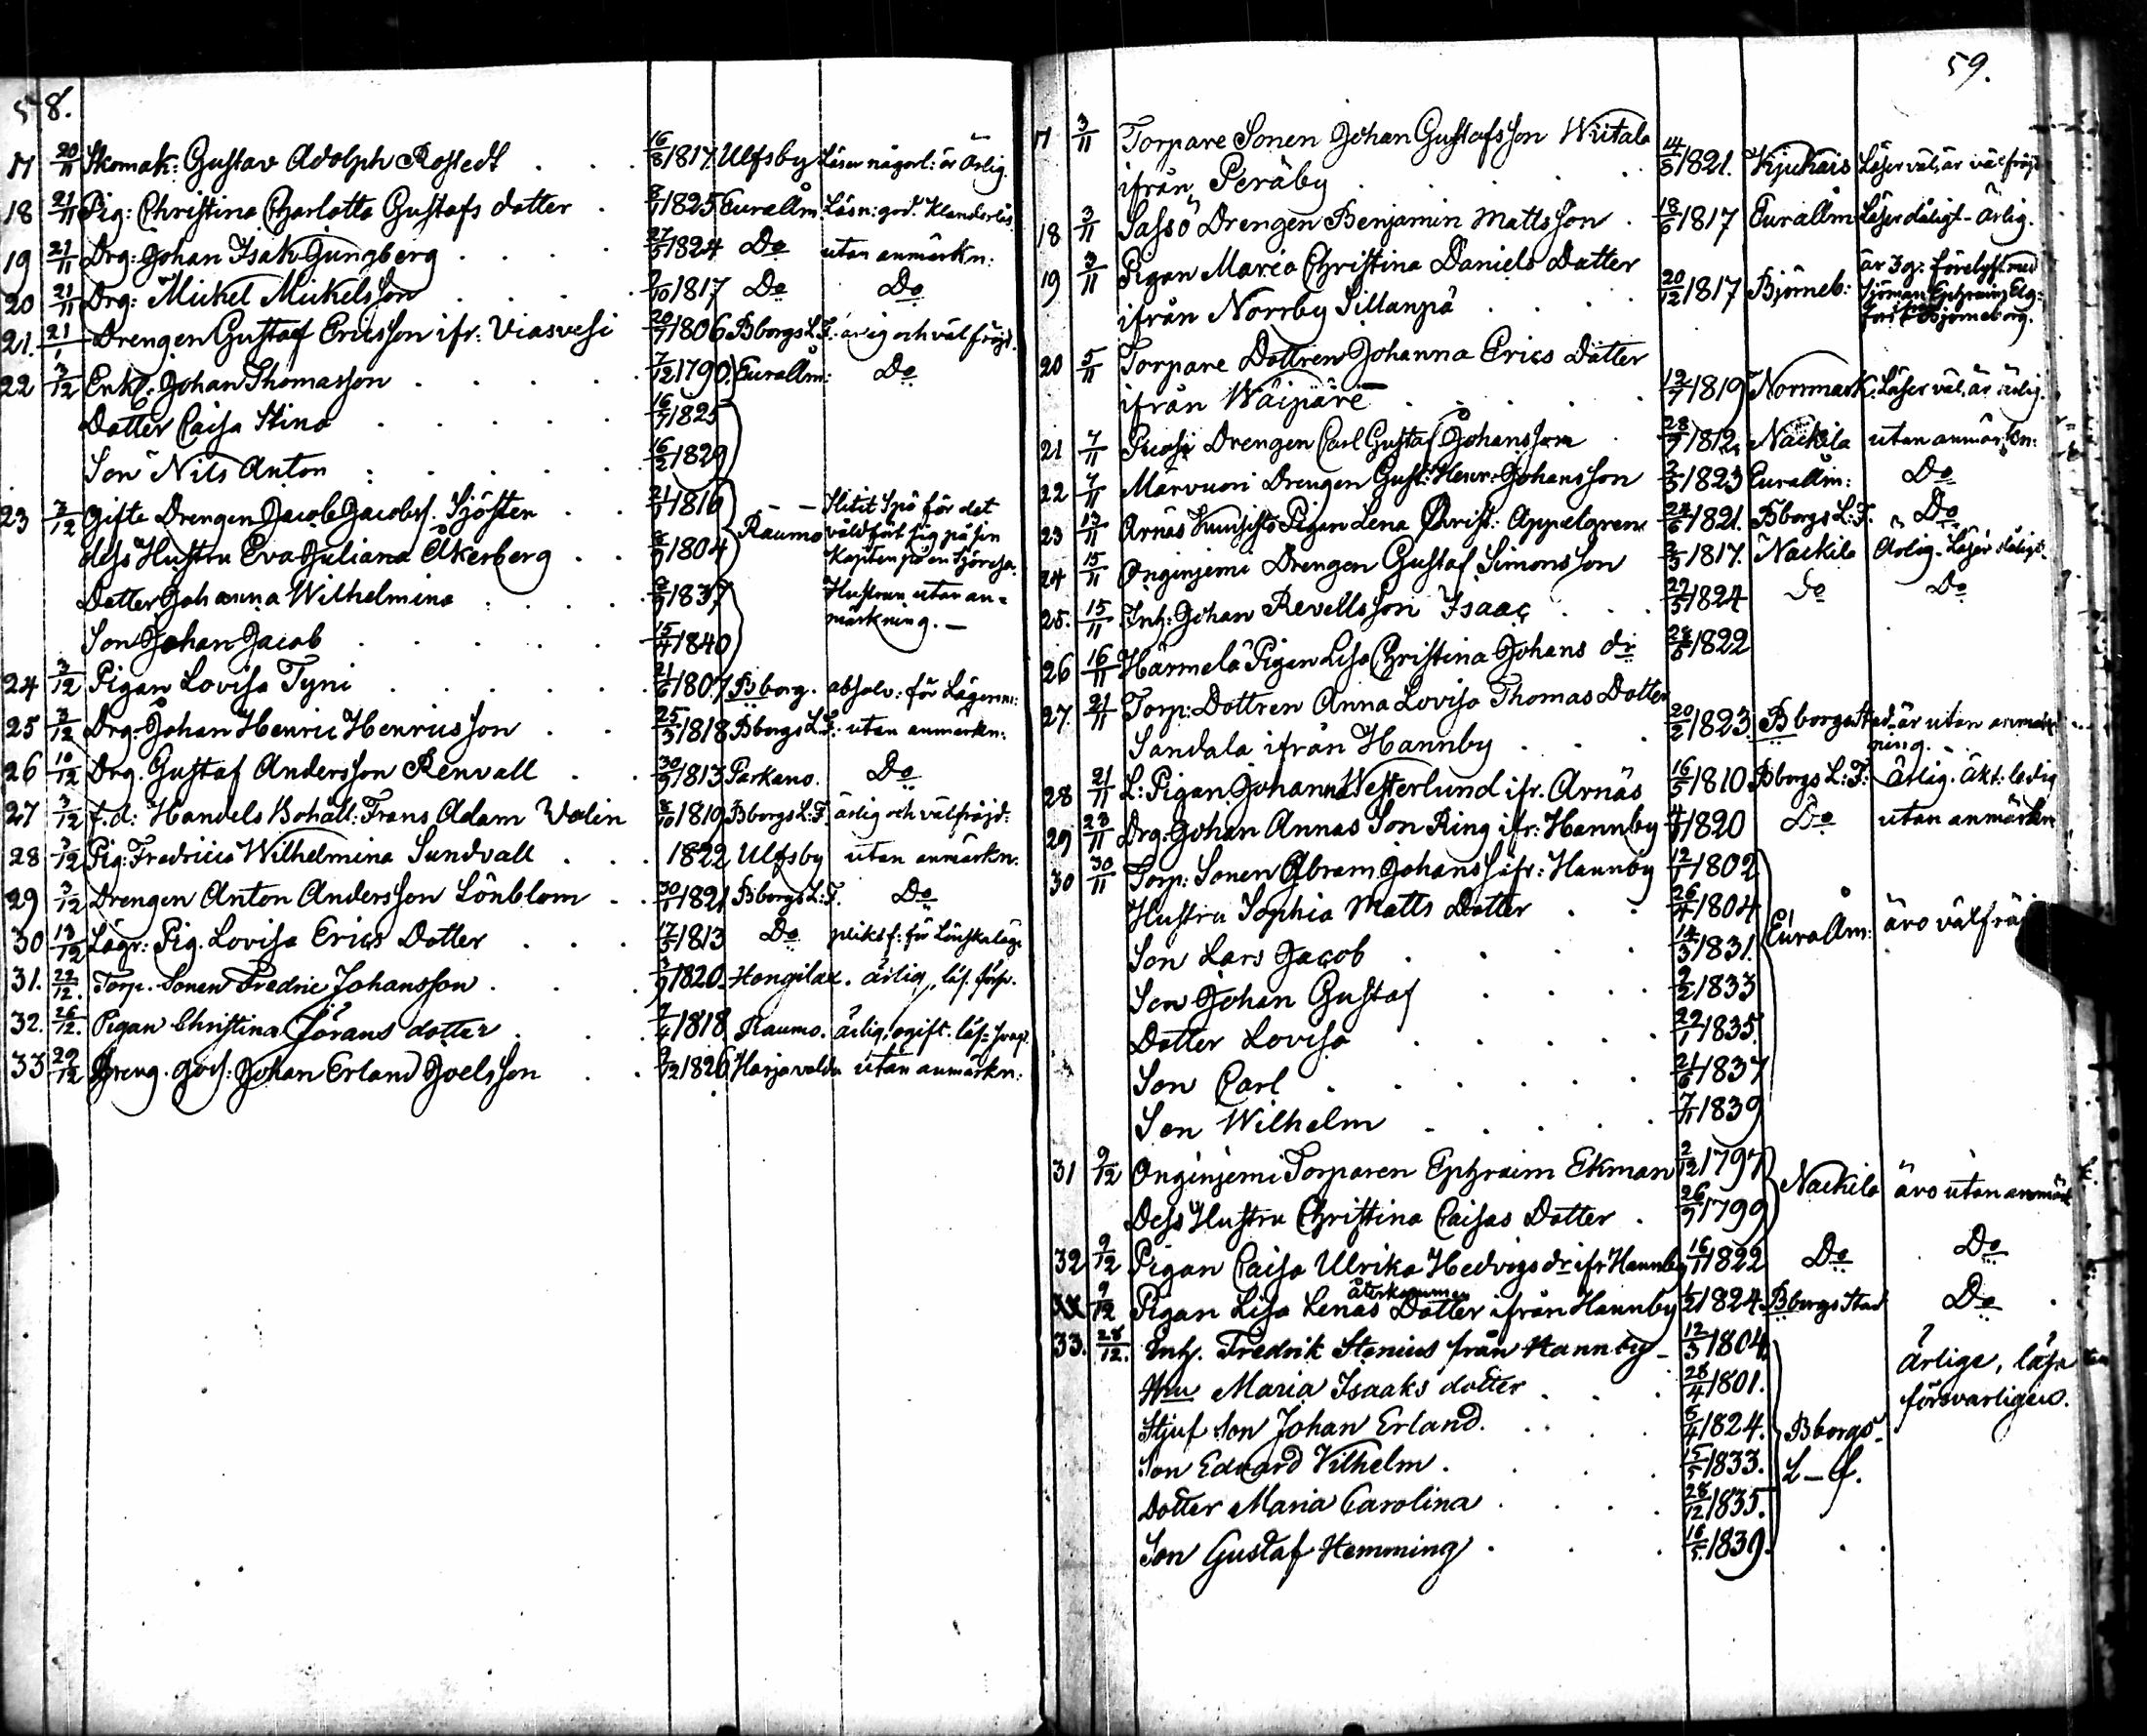 58.
17 20/11 Skomak: Gustav Adolph Rostedt 16/8 1817. Ulfsby Läser någorl: är Ärlig.
18 21/11 Pig: Christina Charlotta Gustafs dotter 8/11 1825 Eurallm Läsn: god. Klanderlös.
19 21/11 Drg: Johan Isak Ljungberg 27/5 1824 Do utan anmärkn:
20 21/11 Drg: Mickel Mickelsson 7/10 1817 Do Do
21. 21/1 Drengen Gustaf Ericsson ifr: Viasvesi 20/7 1806 Bborgs L.F. ärlig och välfrejd.
22 3/12 Enkl. Johan Thomasson 7/12 1790 Eurallm: Do
Dotter Caisa Stina 16/7 1825
Son Nils Anton 16/2 1829
23 3/12 Gifte Drengen Jacob Jacobss. Sjösten 21/7 1816 Slitit Spö för det
dess Hustru Eva Juliana Åkerberg 8/9 1804 Raumo våldfört sig på sin
Kapiten på en Sjöresa.
Dotter Johanna Wilhelmina 8/9 1837 Hustrun utan an=
märkning. —
Son Johan Jacob 15/4 1840
24 3/12 Pigan Lovisa Tyni 21/6 1807 Bborg. absolv: för Lägerm:
25 3/12 Drg: Johan Henric Henricsson 25/3 1818 Bborgs L.F. utan anmärkn:
26 10/12 Drg. Gustaf Andersson Renvall 30/9 1813 Parkano. Do
27 3/12 f.d: Handels Bohåll: Frans Adam Valin 8/10 1819 Bborgs L:F. ärlig och välfrejd:
28 3/12 Pig: Fredrica Wilhelmina Sundvall 1822 Ulfsby utan anmärkn:
29 3/12 Drengen Anton Andersson Lönblom 30/11 1821 Bborgs L:F. Do
30 13/12 Lägr: Pig. Lovisa Erics Dotter 17/5 1813 Do
31. 22/12. Torp. Sonen Fredric Johansson 3/9 1820. Hongilax. ärlig, läs. förs.
32. 26/12. Pigan Christina Jörans dotter 7/4 1818 Raumo. ärlig, ogift. läs: svagt.
33 29/12 Dreng. Johan Erland Joelsson 9/12 1826 Harjavalda utan anmärkn:
59.
17 3/11 Torpare Sonen Johan Gustafsson Wiitala
ifrån Peräby 14/5 1821. Kjukais Läser väl, är välfrejd
18 3/11 Sassö Drengen Benjamin Mattsson 18/6 1817 Eurallm Läser dåligt - ärlig.
19 3/11 Pigan Maria Christina Daniels Dotter är 3 g: förelyst med
ifrån Norrby Sillanpä 20/12 1817 Björneb: Sjöman Ephraim Elg:
fors i Björneborg.
20 5/11 Torpare Dottren Johanna Erics Dotter
ifrån Wäipäre 12/7 1819 Norrmark. Läser väl, är ärlig.
21 7/11 Drengen Carl Gustaf Johansson 28/7 1812. Nackila utan anmärkn:
22 7/11 Marvuori Drengen Gust: Henr: Johansson 2/5 1823 Eurallm: Do
23 13/11 Arnäs Pigan Lena Christ: Appelgren 24/6 1821. Bborgs L:F. Do
24 15/11 Onginjemi Drengen Gustaf Simonsson 2/3 1817. Nackila Ärlig. Läser dåligt.
25. 15/11 Inh: Johan Revellsson Isaac 22/5 1824 Do Do
26 16/11 Härmelä Pigan Lisa Christina Johans dr 28/8 1822
27. 21/11 Torp: Dottren Anna Lovisa Thomas Dotter
Sandala ifrån Hannby 20/2 1823 Bborgs Stad. är utan anmärk
ning.
28 21/11 L: Pigan Johanna Westerlund ifr. Arnäs 16/5 1810 Bborgs L:F: Ärlig. äkt: ledig
29 23/11 Drg: Johan Annas Son Ring ifr: Hannby 4/9 1820 Do utan anmärkn
30 30/11 Torp: Sonen Abram Johanss ifr: Hannby 12/1 1802
Hustru Sophia Matts Dotter 26/4 1804
Son Lars Jacob 14/3 1831. Eura Am: äro välfräj
Son Johan Gustaf 2/2 1833
Dotter Lovisa 22/1 1835.
Son Carl 21/6 1837
Son Wilhelm 7/11 1839
31 9/12 Onginjemi Torparen Ephraim Ekman 2/12 1797 Nackila äro utan anmärk
Dess Hustru Christina Caisas Dotter 26/7 1799
32 9/12 Pigan Caisa Ulrika Hedvigs dr ifr Hannby 16/1 1822 Do Do
återkommen
9/12 Pigan Lisa Lenas Dotter ifrån Hannby 1/2 1824 Bborgs Stad Do
33. 28/12. Inh. Fredrik Stenius från Hannby 12/3 1804.
Hu Maria Isaaks dotter 28/4 1801. ärliga, läsa
Stjuf son Johan Erland. 6/4 1824. försvarligen.
Son Edvard Vilhelm. 15/5 1833. Bborgs
Dotter Maria Carolina 28/12 1835. L-f.
Son Gustaf Hemming 16/5. 1839.